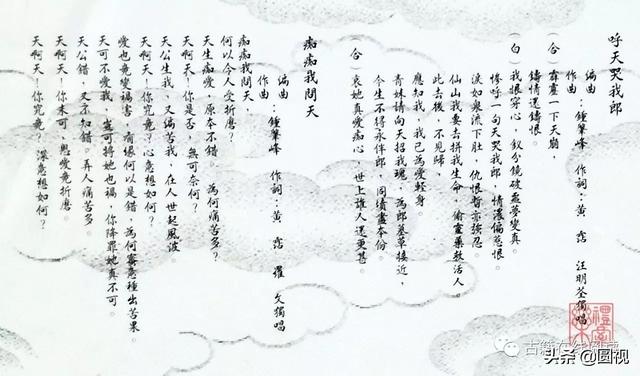 呼天哭我郎
編曲
作曲：鍾肇峰　作詞：黃　霑　汪明荃獨唱
（合）霹靂一下天崩，
鑄情還鑄恨。
（白）我恨穿心，釵分鏡破惡夢變真。
慘呼一句天哭我郎，情濃偏惹恨。
淚如泉流下肚，仇恨暫亦強忍。
仙山我要去拼我生命，偷靈藥救活人。
此去後，不見歸，
應知我，我已為愛輕身。
青妹請向天招我魂，為郎墓草接近，
今生不得永伴郎，同墳盡本份。
（合）哀她真愛痴心，世上誰人還更甚。
痴痴我問天
編曲
作曲：鍾肇峰　作詞：黃　霑　羅　文獨唱
痴痴我問天，
何以今人受折磨？
天生痴愛，原本不錯。為何痛苦多？
天啊天！你是否，無可奈何？
天公生我，又偏害我，在人世起風波
天啊天！你究竟？心意想如何？
愛也竟變禍害，有緣何以是錯，為何蜜意種出苦果。
天可不愛我，豈可將她也禍，你降罪她真不可。
天公錯，又不知錯。弄人痛苦多
天啊天！你未可，恩愛竟折磨。
天啊天！你究竟？深意想如何？
头条 @圆视